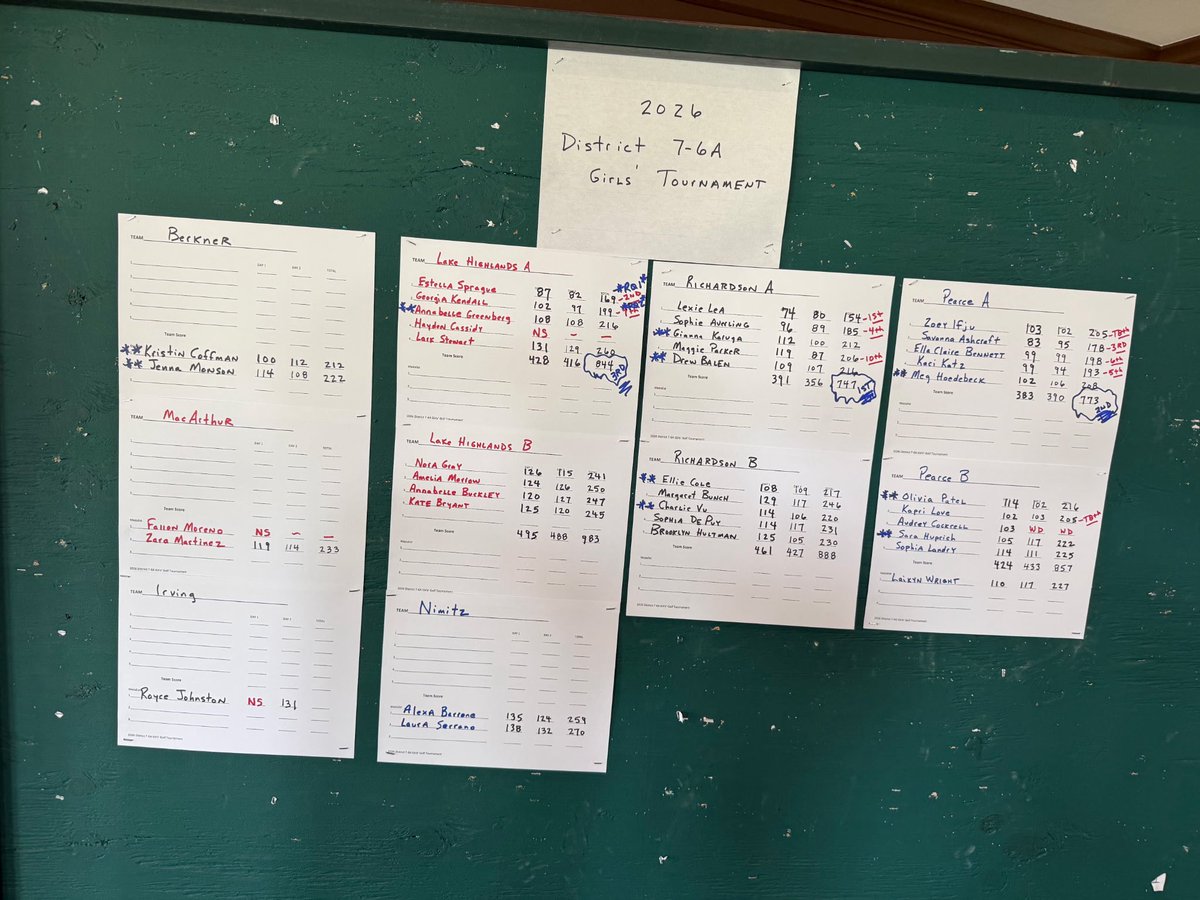 2026
District 7-6A
Girls' Tournament
TEAM Berkner
DAY 1 DAY 2 TOTAL
Team Score
**Kristin Coffman 100 112 212
**Jenna Monson 114 108 222
TEAM MacArthur
Team Score
Fallon Moreno NS – –
Zara Martinez 119 114 233
TEAM Irving
DAY 1 DAY 2 TOTAL
Team Score
Royce Johnston NS 131
TEAM Lake Highlands A
Estella Sprague 87 82 169-2ND
Georgia Kendall 102 97 199
**Annabelle Greenberg 108 108 216
Hayden Cassidy NS – –
Lark Stewart 131 129 260
Team Score 428 416 844 3RD
TEAM Lake Highlands B
Nora Gray 126 115 241
Amelia Morrow 124 126 250
Annabelle Buckley 120 127 247
Kate Bryant 125 120 245
Team Score 495 488 983
TEAM Nimitz
DAY 1 DAY 2 TOTAL
Team Score
Alexa 135 124 259
Laura Serrano 138 132 270
TEAM Richardson A
Lexie Lea 74 80 154-1st
Sophie 96 89 185-4th
**Gianna Kaluga 112 100 212
Maggie Parker 119 87 206-10th
**Drew Balen 109 107 216
Team Score 391 356 747 1ST
TEAM Richardson B
**Ellie Cole 108 109 217
Margaret Bunch 129 117 246
**Charlie Vu 114 106 220
Sophia DePuy 114 117 231
Brooklyn Hultman 125 105 230
Team Score 461 427 888
TEAM Pearce A
Zoey Ifju 103 102 205-T8th
Savanna Ashcroft 83 95 178-3RD
Ella Claire Bennett 99 99 198-6th
Kaci Katz 99 94 193-5th
**Meg Hoedebeck 102 106 208
Team Score 383 390 773 2ND
TEAM Pearce B
**Olivia Patel 114 102 216
Kapri Love 102 103 205-T8th
Audrey Cockrell 103 WD WD
**Sara Huprich 105 117 222
Sophia Landry 114 111 225
Team Score 424 433 857
Laikyn Wright 110 117 227